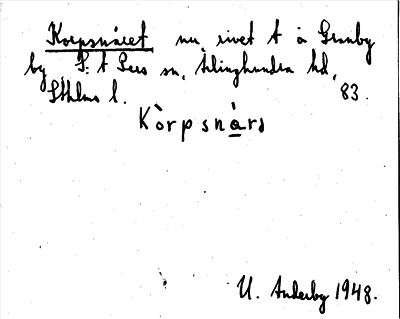 Korpsnäret nu rivet t å Grunby
by, S:t Pers sn, Ärlinghundra hd,
Sthlms l. 83.
Kòrpsnàrə
U. Anderby 1948.